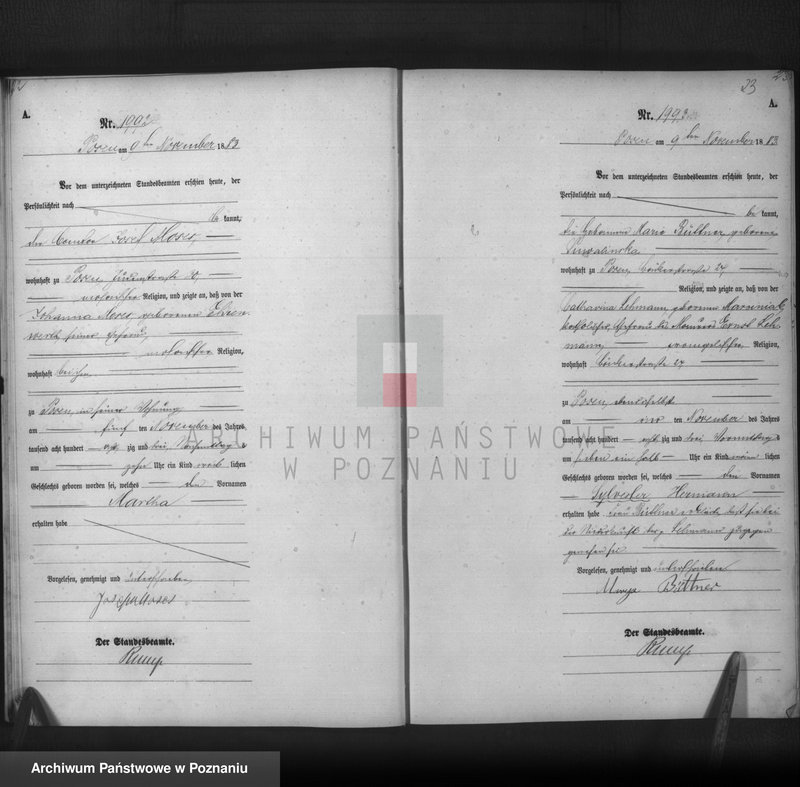 A.
Nr. 1992
Posen am 9ten November 1883
Vor dem unterzeichneten Standesbeamten erschien heute, der
Persönlichkeit nach
be kannt,
Josef Moses,
wohnhaft zu Posen, 
mosaischer Religion, und zeigte an, daß von der
Johanna Moses, geborenen Ehren
werth seiner Ehefrau,
mosaischer Religion,
wohnhaft bei ihm
zu Posen, in seiner Wohnung
am fünf ten November des Jahres
tausend acht hundert acht zig und drei, Vormittags
um zehn Uhr ein Kind weib lichen
Geschlechts geboren worden sei, welches den Vornamen
Martha
erhalten habe
Vorgelesen, genehmigt und unterschrieben
Joseph Moses
Der Standesbeamte.
Rump
23
A.
Nr. 1993
Posen am 9ten November 1883.
Vor dem unterzeichneten Standesbeamten erschien heute, der
Persönlichkeit nach
be kannt,
die Hebamme Marie Büttner, geborene
wohnhaft zu Posen, 
Religion, und zeigte an, daß von der
Catharina Lehmann, geborenen Marciniak,
katholischer, Ehefrau des Maurers Ernst Leh
mann, evangelischer Religion,
wohnhaft
zu Posen, ebendaselbst
am ten November des Jahres
tausend acht hundert acht zig und drei Vormittags
um sieben ein halb Uhr ein Kind männ lichen
Geschlechts geboren worden sei, welches den Vornamen
Sylvester Hermann
erhalten habe, Frau Büttner erklärte, daß sie bei
der Niederkunft der p. Lehmann zugegen
gewesen sei
Vorgelesen, genehmigt und unterschrieben
Marya Büttner
Der Standesbeamte.
Rump
ARCHIWUM PAŃSTWOWE
W POZNANIU
Archiwum Państwowe w Poznaniu